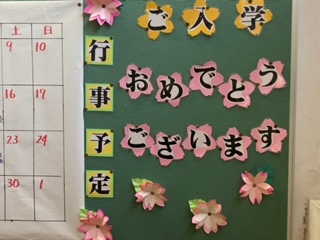 ご入学
おめでとう
ございます
行事予定
土 日
9 10
16 17
23 24
30 1